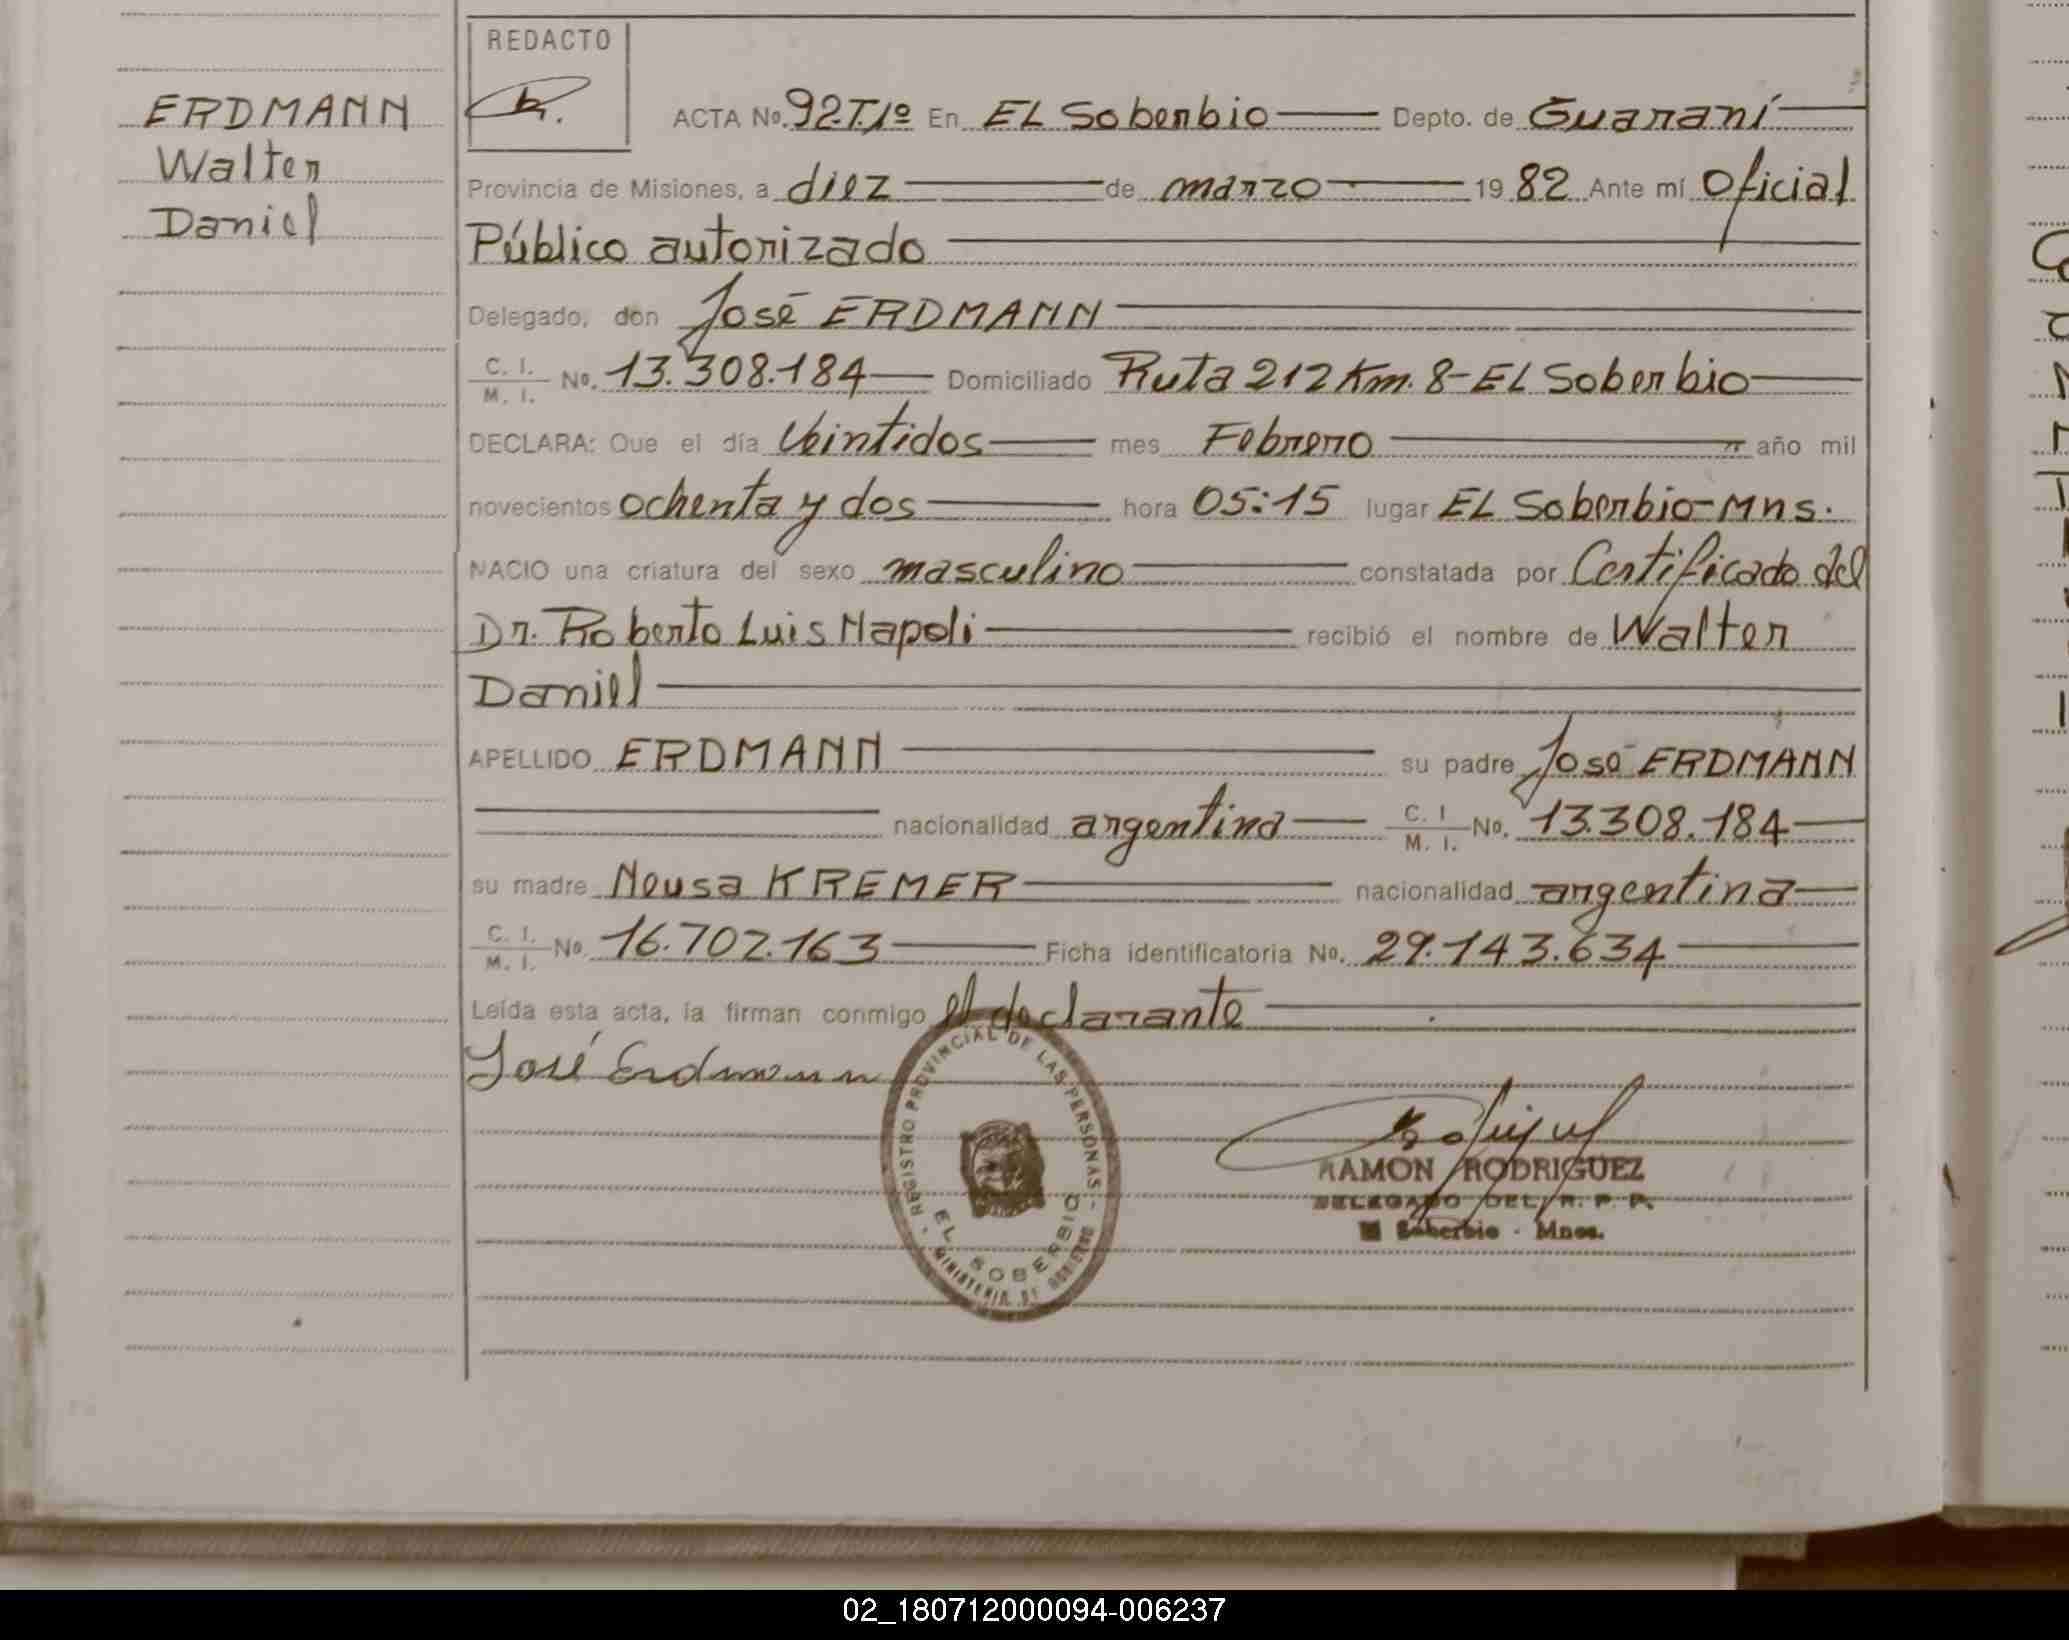 REDACTO
ERDMANN
Walter
Daniel
ACTA No. 92 T.1º En EL Soberbio Depto. de Guaraní
Provincia de Misiones, a diez de marzo 1982 Ante mí Oficial
Público autorizado
Delegado, don José ERDMANN
C. I. M. I. No. 13.308.184 Domiciliado Ruta 212 Km. 8 - EL Soberbio
DECLARA: Que el día Veintidos mes Febrero año mil
novecientos ochenta y dos hora 05:15 lugar EL Soberbio - Mns.
NACIO una criatura del sexo masculino constatada por Certificado del
Dr. Roberto Luis Napoli recibió el nombre de Walter
Daniel
APELLIDO ERDMANN su padre José ERDMANN
nacionalidad argentina C. I. M. I. No. 13.308.184
su madre Neusa KREMER nacionalidad argentina
C. I. M. I. No. 16.702.163 Ficha identificatoria No. 29.143.634
Leída esta acta, la firman conmigo el declarante
José Erdmann
REGISTRO PROVINCIAL DE LAS PERSONAS -
EL SOBERBIO
MINISTERIO DE GOBIERNO
RAMON RODRIGUEZ
DELEGADO DEL R. P. P.
El Soberbio - Mnes.
02_180712000094-006237